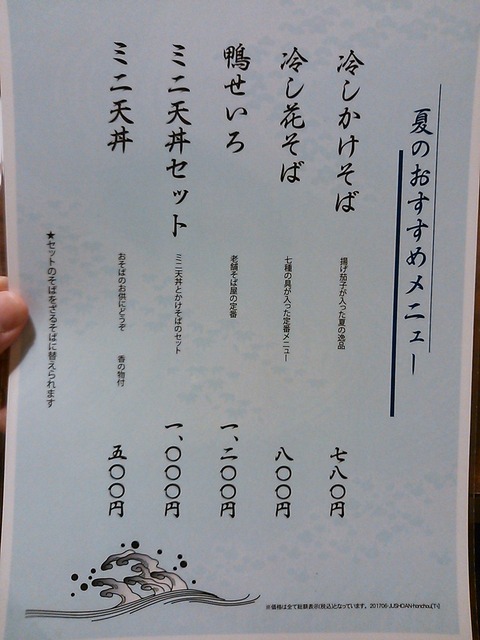 夏のおすすめメニュー
冷しかけそば
揚げ茄子が入った夏の逸品
七八〇円
冷し花そば
七種の具が入った定番メニュー
八〇〇円
鴨せいろ
老舗そば屋の定番
一、二〇〇円
ミニ天丼セット
ミニ天丼とかけそばのセット
一、〇〇〇円
ミニ天丼
おそばのお供にどうぞ 香の物付
五〇〇円
★セットのそばをざるそばに替えられます
※価格は全て総額表示(税込)となっています。201706 JUSHOAN-honchou[TN]